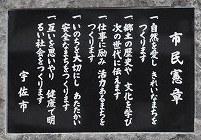 市民憲章
一、自然を愛し きれいなまちを
つくります
一、郷土の歴史や 文化を学び
次の世代に伝えます
一、仕事に励み 活力あるまちを
つくります
一、いのちを大切にし あたたかい
安全なまちをつくります
一、互いを思いやり 健康で明
るい社会をつくります
宇佐市